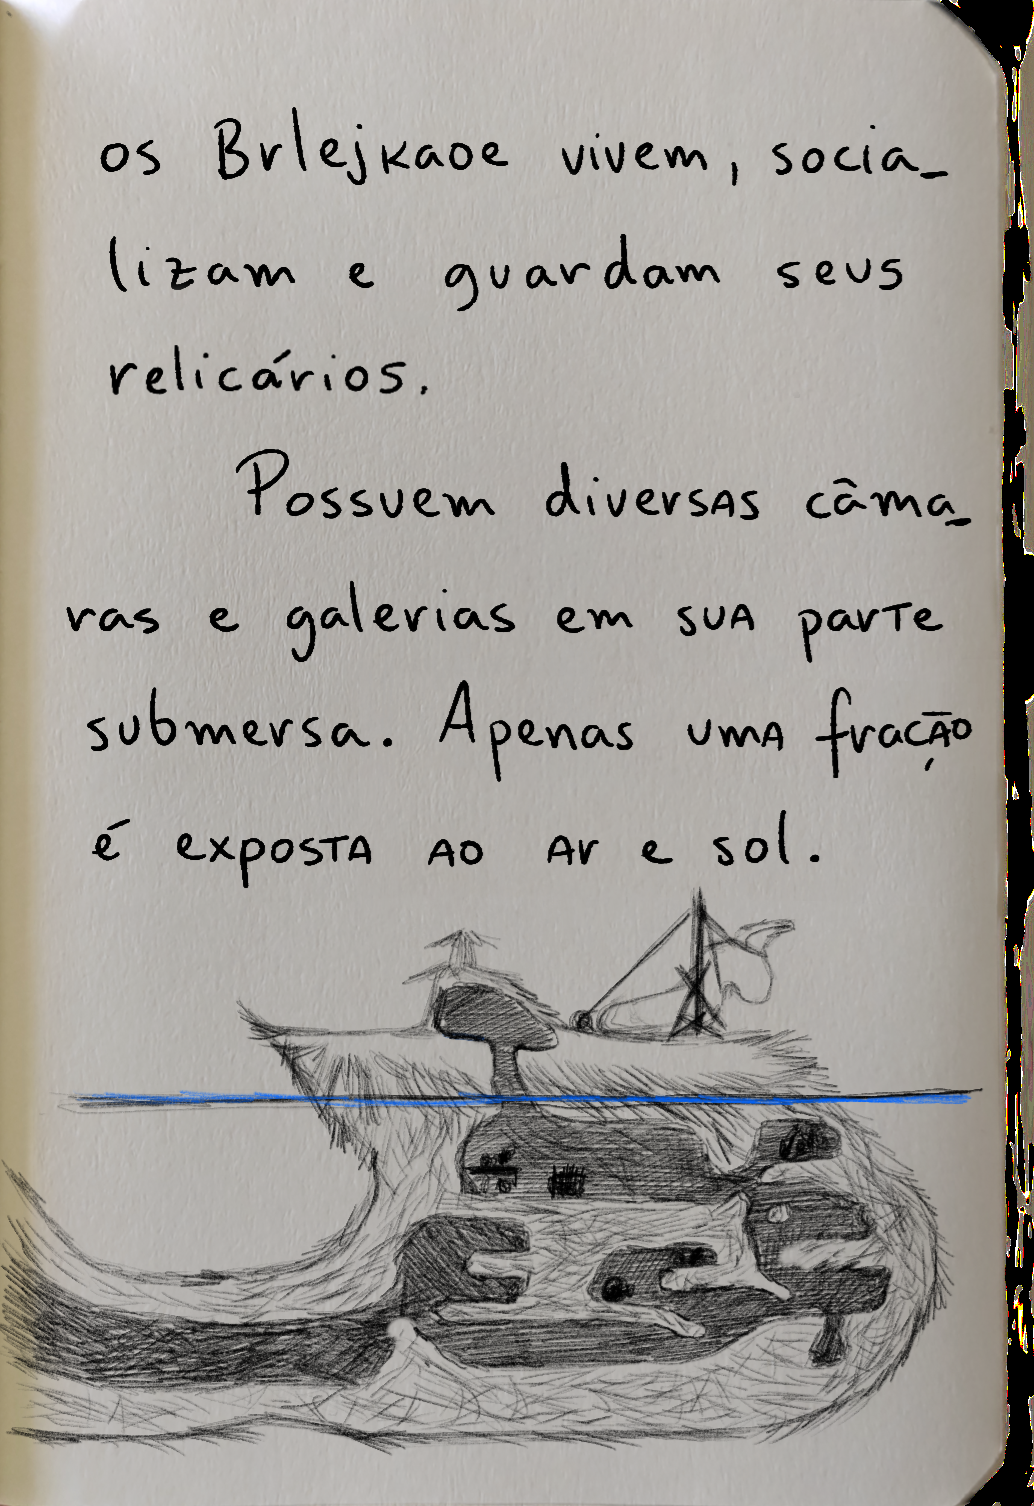 os Brlejkaoe vivem, socia-
lizam e guardam seus
relicários.
Possuem diversas câma-
ras e galerias em sua parte
submersa. Apenas uma fração
é exposta ao ar e sol.